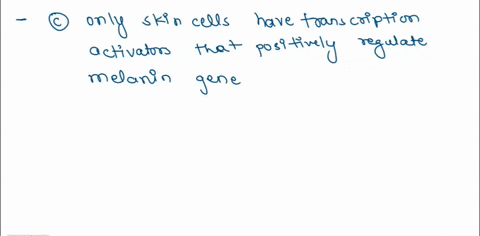 - ⓒ only skin cells have transcription
activators that positively regulate
melanin gene